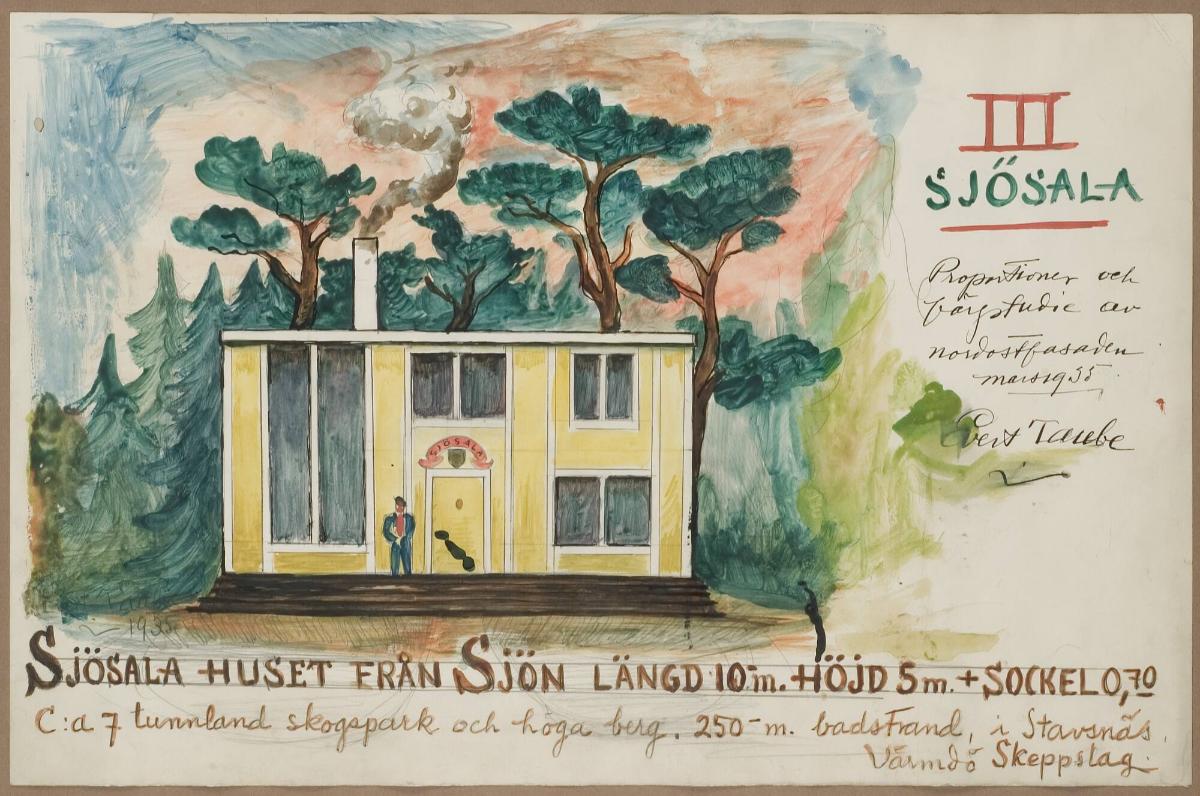 III
SJÖSALA
Proportioner och
färgstudie av
nordostfasaden
mars 1935
Evert Taube
SJÖSALA
1935
SJÖSALA HUSET FRÅN SJÖN LÄNGD 10 m. HÖJD 5 m. + SOCKEL 0,70
C:a 7 tunnland skogspark och höga berg. 250 m. badstrand, i Stavsnäs,
Värmdö Skeppslag.